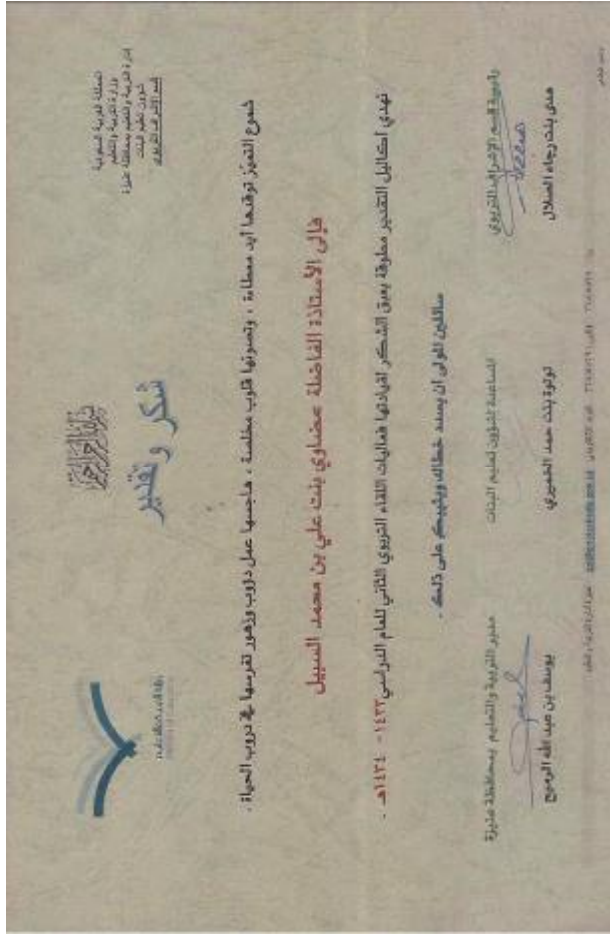 المملكة العربية السعودية
وزارة التربية والتعليم
إدارة التربية والتعليم بمحافظة عنيزة
شؤون تعليم البنات
قسم الإشراف التربوي
شكر وتقدير
شموع التميز توقدها أيد معطاءة ، وتصونها قلوب مخلصة ، هاجسها عمل دؤوب وزهور تغرسها في دروب الحياة .
فإلى الأستاذة الفاضلة عضاوي بنت علي بن محمد السبيل
نهدي أكاليل التقدير مطوقة بعبق الشكر لقيادتها فعاليات اللقاء التربوي الثاني للعام الدراسي ١٤٣٣ - ١٤٣٤هـ .
سائلين المولى أن يسدد خطاك ويثيبك على ذلك .
رئيسة قسم الإشراف التربوي
هدى بنت رجاء السلال
المساعدة لشؤون تعليم البنات
لولوة بنت حمد
مدير التربية والتعليم بمحافظة عنيزة
يوسف بن عبد الله الرميح